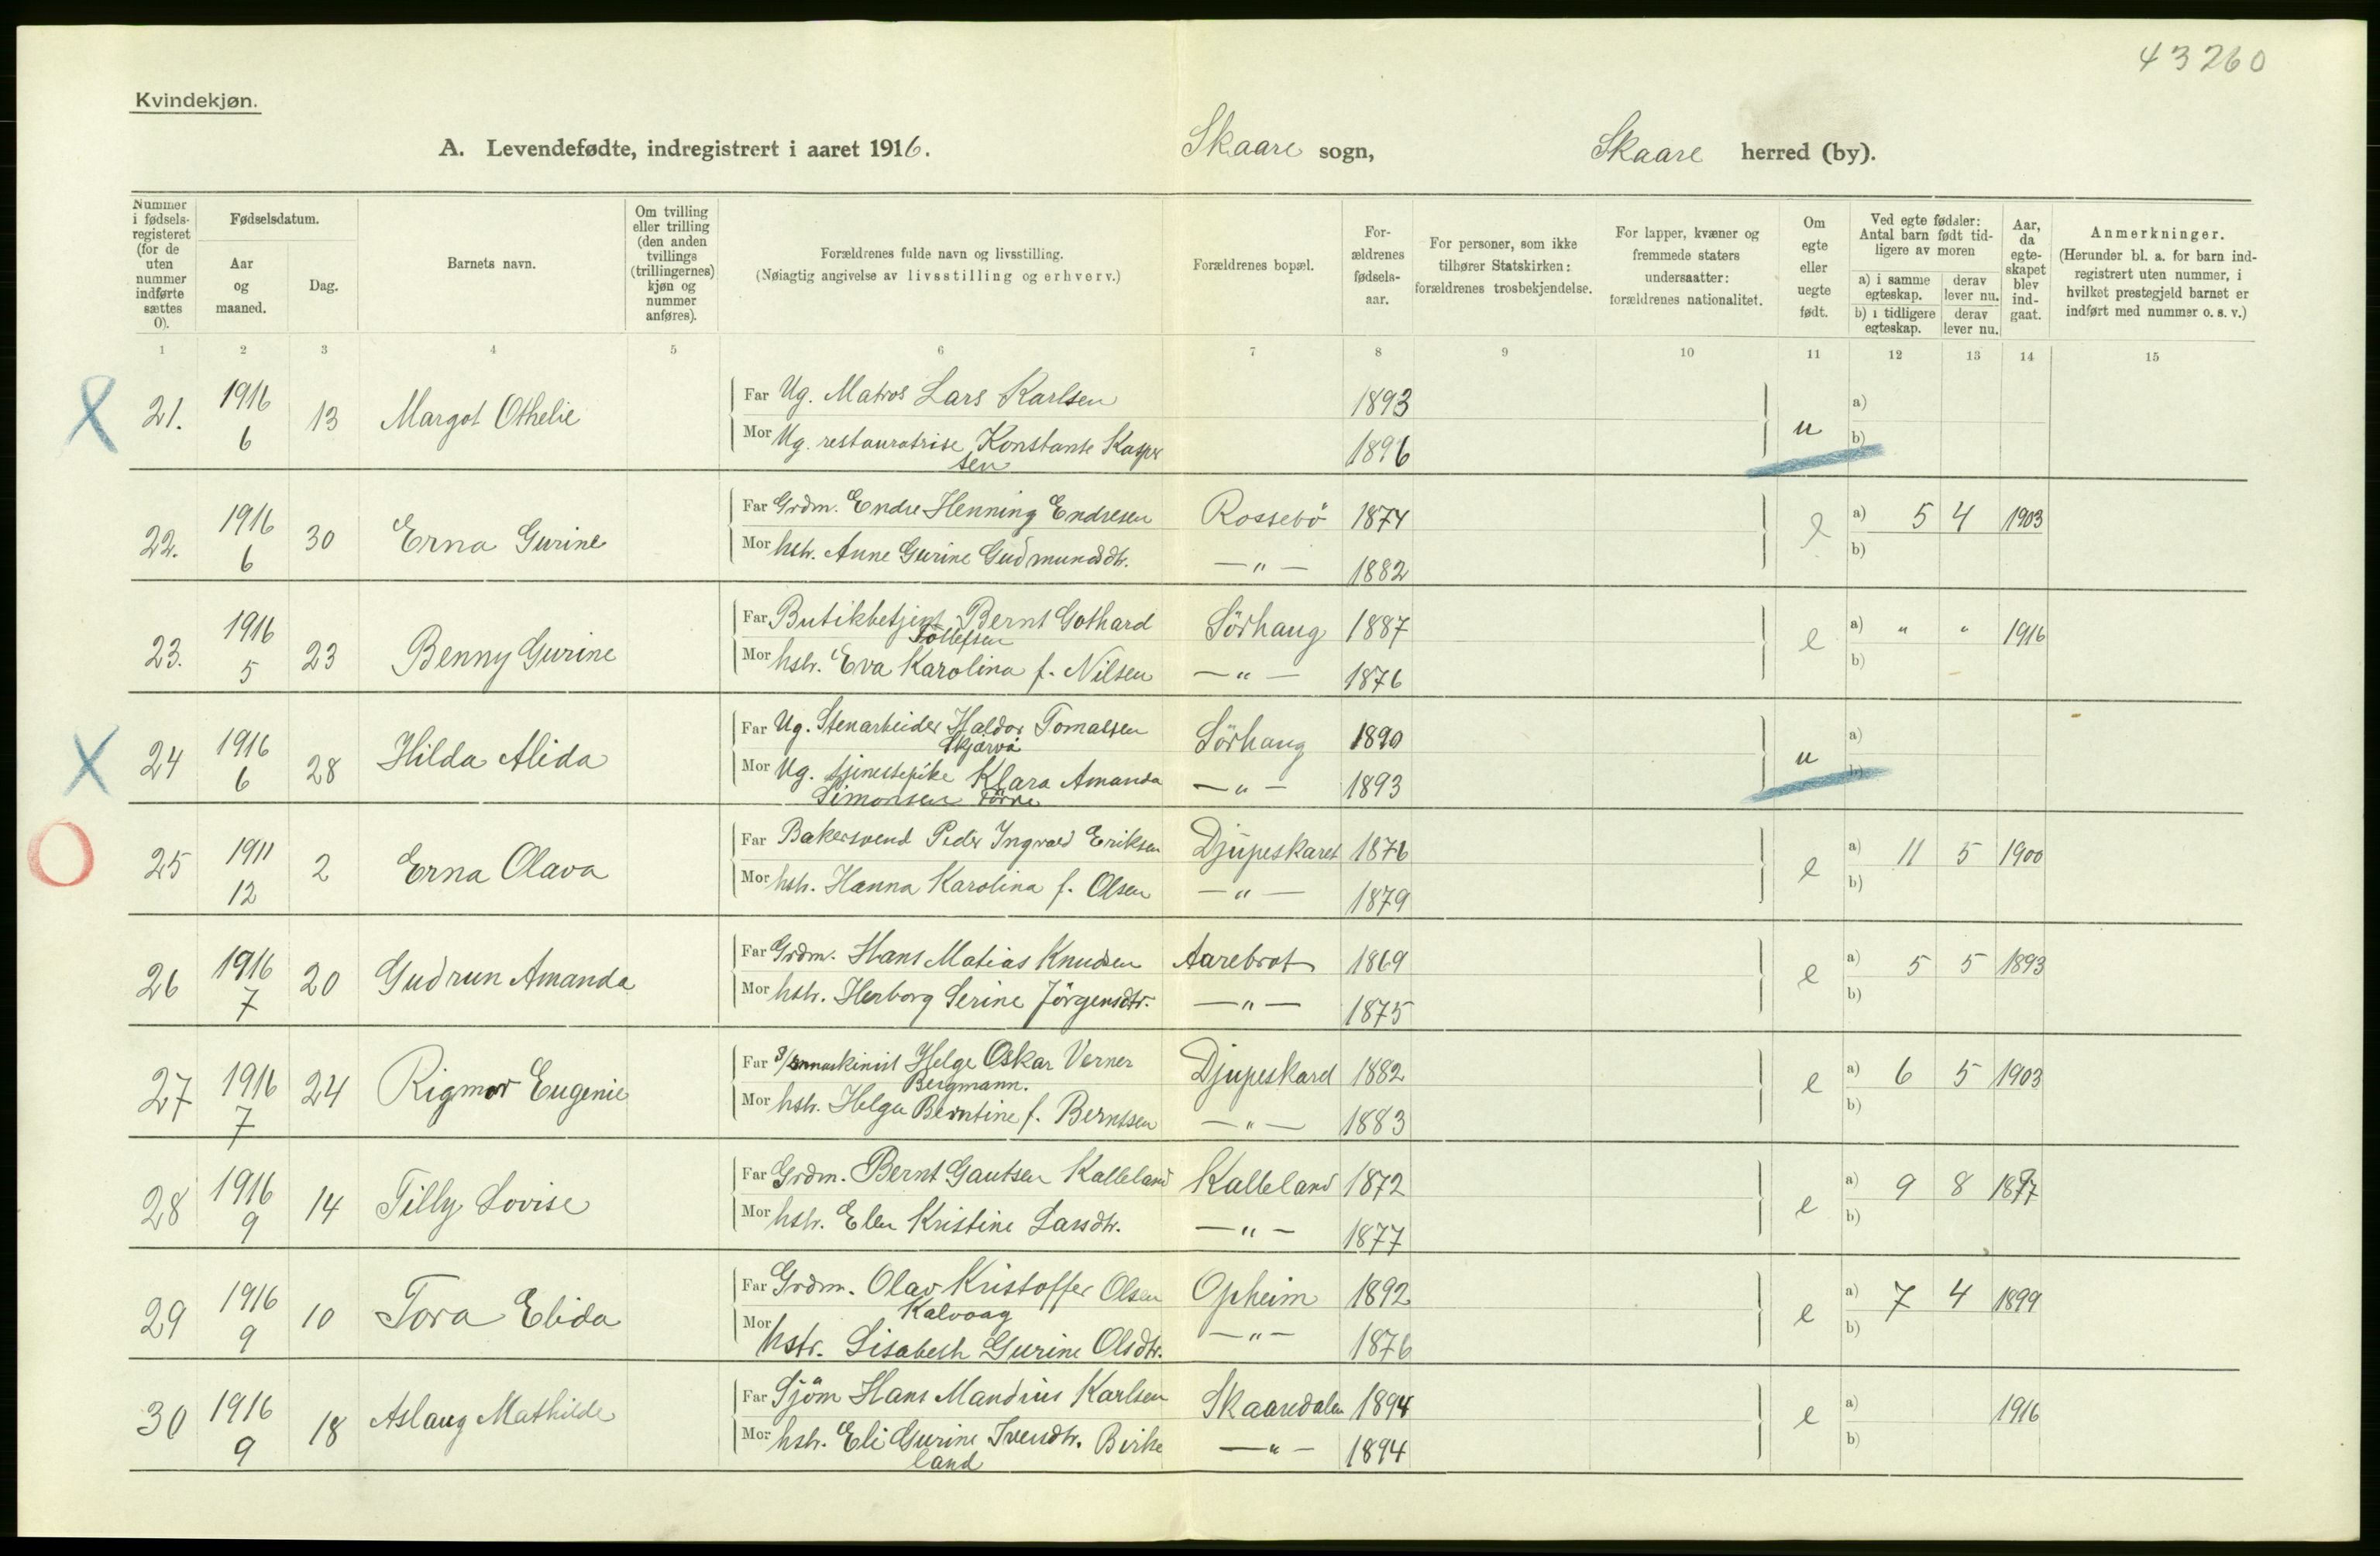 43260
Kvindekjøn.
A. Levendefødte, indregistrert i aaret 1916. Skaare sogn, Skaare herred (by).
Nummer i fødsels-registeret (for de uten nummer indførte sættes 0).
Fødselsdatum.
Aar og maaned.
Dag.
Barnets navn.
Om tvilling eller trilling (den anden tvillings (trillingernes) kjøn og nummer anføres).
Forældrenes fulde navn og livsstilling.
(Nøiagtig angivelse av livsstilling og erhverv.)
Forældrenes bopæl.
For-ældrenes fødsels-aar.
For personer, som ikke tilhører Statskirken: forældrenes trosbekjendelse.
For lapper, kvæner og fremmede staters undersaatter: forældrenes nationalitet.
Om egte eller uegte født.
Ved egte fødsler: Antal barn født tid-ligere av moren
a) i samme egteskap. derav lever nu.
b) i tidligere egteskap. derav lever nu.
Aar, da egte-skapet blev ind-gaat.
Anmerkninger.
(Herunder bl. a. for barn ind-registrert uten nummer, i hvilket prestegjeld barnet er indført med nummer o. s. v.)
1 2 3 4 5 6 7 8 9 10 11 12 13 14 15
X 21. 1916 6 13 Margot Othelie
Far Ug. Matros Lars Karlsen 1893 u a)
Mor Ug. restauratrise Konstanse Kasper 1896 b)
sen
22. 1916 6 30 Erna Gurine
Far Grdm. Endre Henning Endresen Rossebö 1874 e a) 5 4 1903
Mor hstr. Anne Gurine Gudmundsdtr. — " — 1882 b)
23. 1916 5 23 Benny Gurine
Far Butikbetjent Bernt Gothard Sörhaug 1887 e a) " " 1916
Tollefsen
Mor hstr. Eva Karolina f. Nilsen — " — 1876 b)
X 24 1916 6 28 Hilda Alida
Far Ug. Stenarbeider Haldor Tomassen Sörhaug 1890 u a)
Mor Ug. tjenestepike Klara Amanda — " — 1893 b)
Simonsen
O 25 1911 12 2 Erna Olava
Far Bakersvend Peder Ingvald Eriksen Djupeskaret 1876 e a) 11 5 1900
Mor hstr. Hanna Karolina f. Olsen — " — 1879 b)
26 1916 7 20 Gudrun Amanda
Far Grdm. Hans Matias Knudsen Aarebrot 1869 e a) 5 5 1893
Mor hstr. Herborg Serine Jörgensdtr. — " — 1875 b)
27 1916 7 24 Rigmor Eugenie
Far Helge Oskar Verner Djupeskaret 1882 e a) 6 5 1903
Bergmann.
Mor hstr. Helga Berntine f. Berntsen — " — 1883 b)
28 1916 9 14 Tilly Lovise
Far Grdm. Bernt Gautsen Kalleland Kalleland 1872 e a) 9 8 1897
Mor hstr. Elen Kristine Larsdtr. — " — 1877 b)
29 1916 9 10 Tora Elida
Far Grdm. Olav Kristoffer Olsen Opheim 1892 e a) 7 4 1899
Kalvaag
Mor hstr. Lisabeth Gurine Olsdtr. — " — 1876 b)
30 1916 9 18 Aslaug Mathilde
Far Sjöm Hans Mandius Karlsen Skaaredalen 1894 e a) 1916
Mor hstr. Eli Gurine Iversdtr. Birke — " — 1894 b)
land